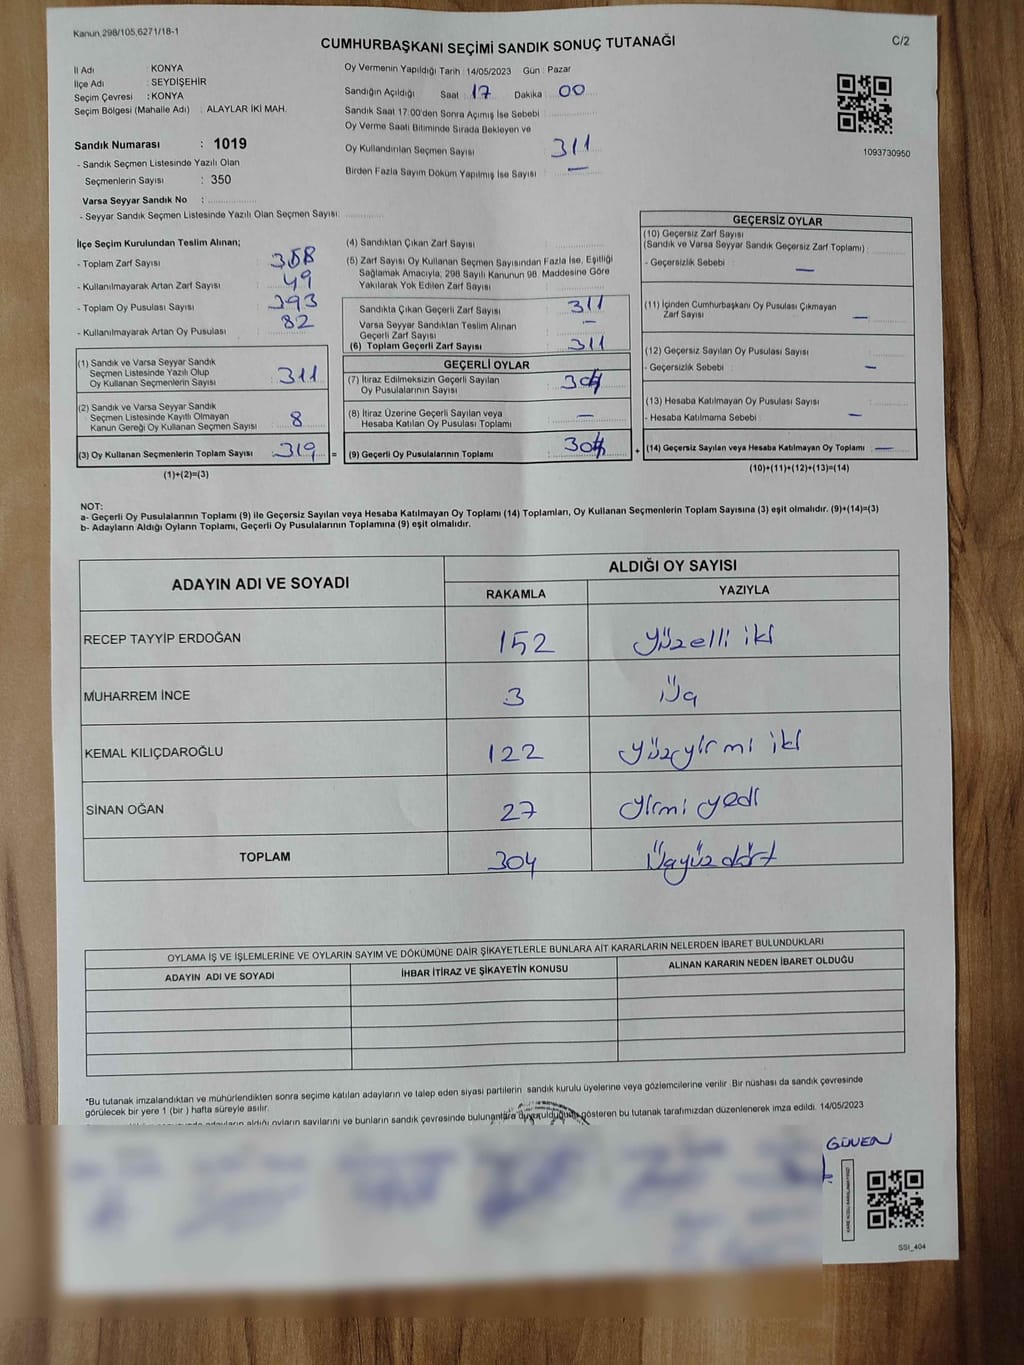 Kanun,298/105,6271/18-1
C/2
CUMHURBAŞKANI SEÇİMİ SANDIK SONUÇ TUTANAĞI
İl Adı : KONYA
İlçe Adı : SEYDİŞEHİR
Seçim Çevresi : KONYA
Seçim Bölgesi (Mahalle Adı) : ALAYLAR İKİ MAH.
Sandık Numarası : 1019
- Sandık Seçmen Listesinde Yazılı Olan
Seçmenlerin Sayısı : 350
Varsa Seyyar Sandık No :
- Seyyar Sandık Seçmen Listesinde Yazılı Olan Seçmen Sayısı:
Oy Vermenin Yapıldığı Tarih : 14/05/2023 Gün : Pazar
Sandığın Açıldığı Saat : 17 Dakika : 00
Sandık Saat 17:00'den Sonra Açımış İse Sebebi :
Oy Verme Saati Bitiminde Sırada Bekleyen ve
Oy Kullandırılan Seçmen Sayısı : 311
Birden Fazla Sayım Döküm Yapılmış İse Sayısı : —
1093730950
İlçe Seçim Kurulundan Teslim Alınan;
- Toplam Zarf Sayısı : 358
- Kullanılmayarak Artan Zarf Sayısı : 49
- Toplam Oy Pusulası Sayısı : 393
- Kullanılmayarak Artan Oy Pusulası : 82
(1) Sandık ve Varsa Seyyar Sandık
Seçmen Listesinde Yazılı Olup
Oy Kullanan Seçmenlerin Sayısı : 311
(2) Sandık ve Varsa Seyyar Sandık
Seçmen Listesinde Kayıtlı Olmayan
Kanun Gereği Oy Kullanan Seçmen Sayısı : 8
(3) Oy Kullanan Seçmenlerin Toplam Sayısı : 319 =
(1)+(2)=(3)
(4) Sandıktan Çıkan Zarf Sayısı :
(5) Zarf Sayısı Oy Kullanan Seçmen Sayısından Fazla İse, Eşitliği
Sağlamak Amacıyla, 298 Sayılı Kanunun 98. Maddesine Göre
Yakılarak Yok Edilen Zarf Sayısı :
Sandıkta Çıkan Geçerli Zarf Sayısı : 311
Varsa Seyyar Sandıktan Teslim Alınan
Geçerli Zarf Sayısı : —
(6) Toplam Geçerli Zarf Sayısı : 311
GEÇERLİ OYLAR
(7) İtiraz Edilmeksizin Geçerli Sayılan
Oy Pusulalarının Sayısı : 304
(8) İtiraz Üzerine Geçerli Sayılan veya
Hesaba Katılan Oy Pusulası Toplamı : —
(9) Geçerli Oy Pusulalarının Toplamı : 304 +
GEÇERSİZ OYLAR
(10) Geçersiz Zarf Sayısı
(Sandık ve Varsa Seyyar Sandık Geçersiz Zarf Toplamı) :
- Geçersizlik Sebebi : —
(11) İçinden Cumhurbaşkanı Oy Pusulası Çıkmayan
Zarf Sayısı : —
(12) Geçersiz Sayılan Oy Pusulası Sayısı :
- Geçersizlik Sebebi : —
(13) Hesaba Katılmayan Oy Pusulası Sayısı :
- Hesaba Katılmama Sebebi : —
(14) Geçersiz Sayılan veya Hesaba Katılmayan Oy Toplamı : —
(10)+(11)+(12)+(13)=(14)
NOT:
a- Geçerli Oy Pusulalarının Toplamı (9) ile Geçersiz Sayılan veya Hesaba Katılmayan Oy Toplamı (14) Toplamları, Oy Kullanan Seçmenlerin Toplam Sayısına (3) eşit olmalıdır. (9)+(14)=(3)
b- Adayların Aldığı Oyların Toplamı, Geçerli Oy Pusulalarının Toplamına (9) eşit olmalıdır.
ADAYIN ADI VE SOYADI
ALDIĞI OY SAYISI
RAKAMLA YAZIYLA
RECEP TAYYİP ERDOĞAN 152 yüzelli iki
MUHARREM İNCE 3 Üç
KEMAL KILIÇDAROĞLU 122 yüzyirmi iki
SİNAN OĞAN 27 yirmi yedi
TOPLAM 304 Üçyüz dört
OYLAMA İŞ VE İŞLEMLERİNE VE OYLARIN SAYIM VE DÖKÜMÜNE DAİR ŞİKAYETLERLE BUNLARA AİT KARARLARIN NELERDEN İBARET BULUNDUKLARI
ADAYIN ADI VE SOYADI İHBAR İTİRAZ VE ŞİKAYETİN KONUSU ALINAN KARARIN NEDEN İBARET OLDUĞU
*Bu tutanak imzalandıktan ve mühürlendikten sonra seçime katılan adayların ve talep eden siyasi partilerin sandık kurulu üyelerine veya gözlemcilerine verilir .Bir nüshası da sandık çevresinde
görülecek bir yere 1 (bir ) hafta süreyle asılır.
adayların aldığı oyların sayılarını ve bunların sandık çevresinde bulunanlara duyurulduğunu gösteren bu tutanak tarafımızdan düzenlenerek imza edildi. 14/05/2023
GÜVEN
SSI_404